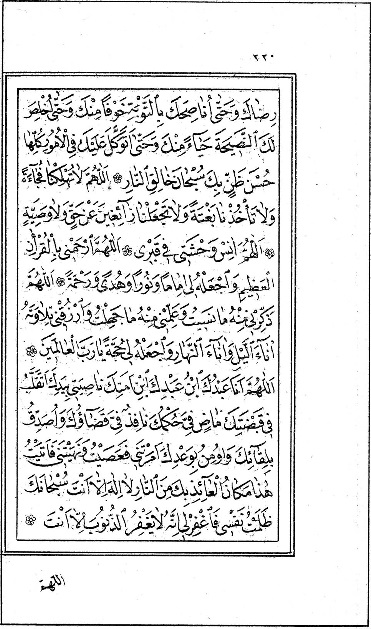 ٢٢٠
رِضَاكَ وَحَتّٰى أُنَاصِحَكَ بِالتَّوْبَةِ خَوْفًا مِنْكَ وَحَتّٰى أُخْلِصَ
لَكَ النَّصِيحَةَ حَيَاءً مِنْكَ وَحَتّٰى أَتَوَكَّلَ عَلَيْكَ فِي الْأُمُورِ كُلِّهَا
حُسْنَ ظَنٍّ بِكَ سُبْحَانَ خَالِقِ النَّارِ ❁ اَللّٰهُمَّ لَا تُهْلِكْنَا فُجَاءَةً
وَلَا تَأْخُذْنَا بَغْتَةً وَلَا تَجْعَلْنَا زَائِغِينَ عَنْ حَقٍّ وَلَا وَصِيَّةٍ
❁ اَللّٰهُمَّ اٰنِسْ وَحْشَتِي فِي قَبْرِي ❁ اَللّٰهُمَّ ارْحَمْنِي بِالْقُرْاٰنِ
الْعَظِيمِ وَاجْعَلْهُ لِي اِمَامًا وَنُورًا وَهُدًى وَرَحْمَةً ❁ اَللّٰهُمَّ
ذَكِّرْنِي مِنْهُ مَا نَسِيتُ وَعَلِّمْنِي مِنْهُ مَا جَهِلْتُ وَارْزُقْنِي تِلَاوَتَهُ
اٰنَاءَ الَّيْلِ وَاٰنَاءَ النَّهَارِ وَاجْعَلْهُ لِي حُجَّةً يَا رَبَّ الْعَالَمِينَ ❁
اَللّٰهُمَّ اَنَا عَبْدُكَ ابْنُ عَبْدِكَ ابْنُ اَمَتِكَ نَاصِيَتِي بِيَدِكَ اَتَقَلَّبُ
فِي قَبْضَتِكَ مَاضٍ فِيَّ حُكْمُكَ نَافِذٌ فِيَّ قَضَاؤُكَ وَاُصَدِّقُ
بِلِقَائِكَ وَاُومِنُ بِوَعْدِكَ اَمَرْتَنِي فَعَصَيْتُ وَنَهَيْتَنِي فَاَتَيْتُ
هٰذَا مَكَانُ الْعَائِذِ بِكَ مِنَ النَّارِ لَا اِلٰهَ اِلَّا اَنْتَ سُبْحَانَكَ
ظَلَمْتُ نَفْسِي فَاغْفِرْ لِي اِنَّهُ لَا يَغْفِرُ الذُّنُوبَ اِلَّا اَنْتَ ❁
اللّٰهمّ